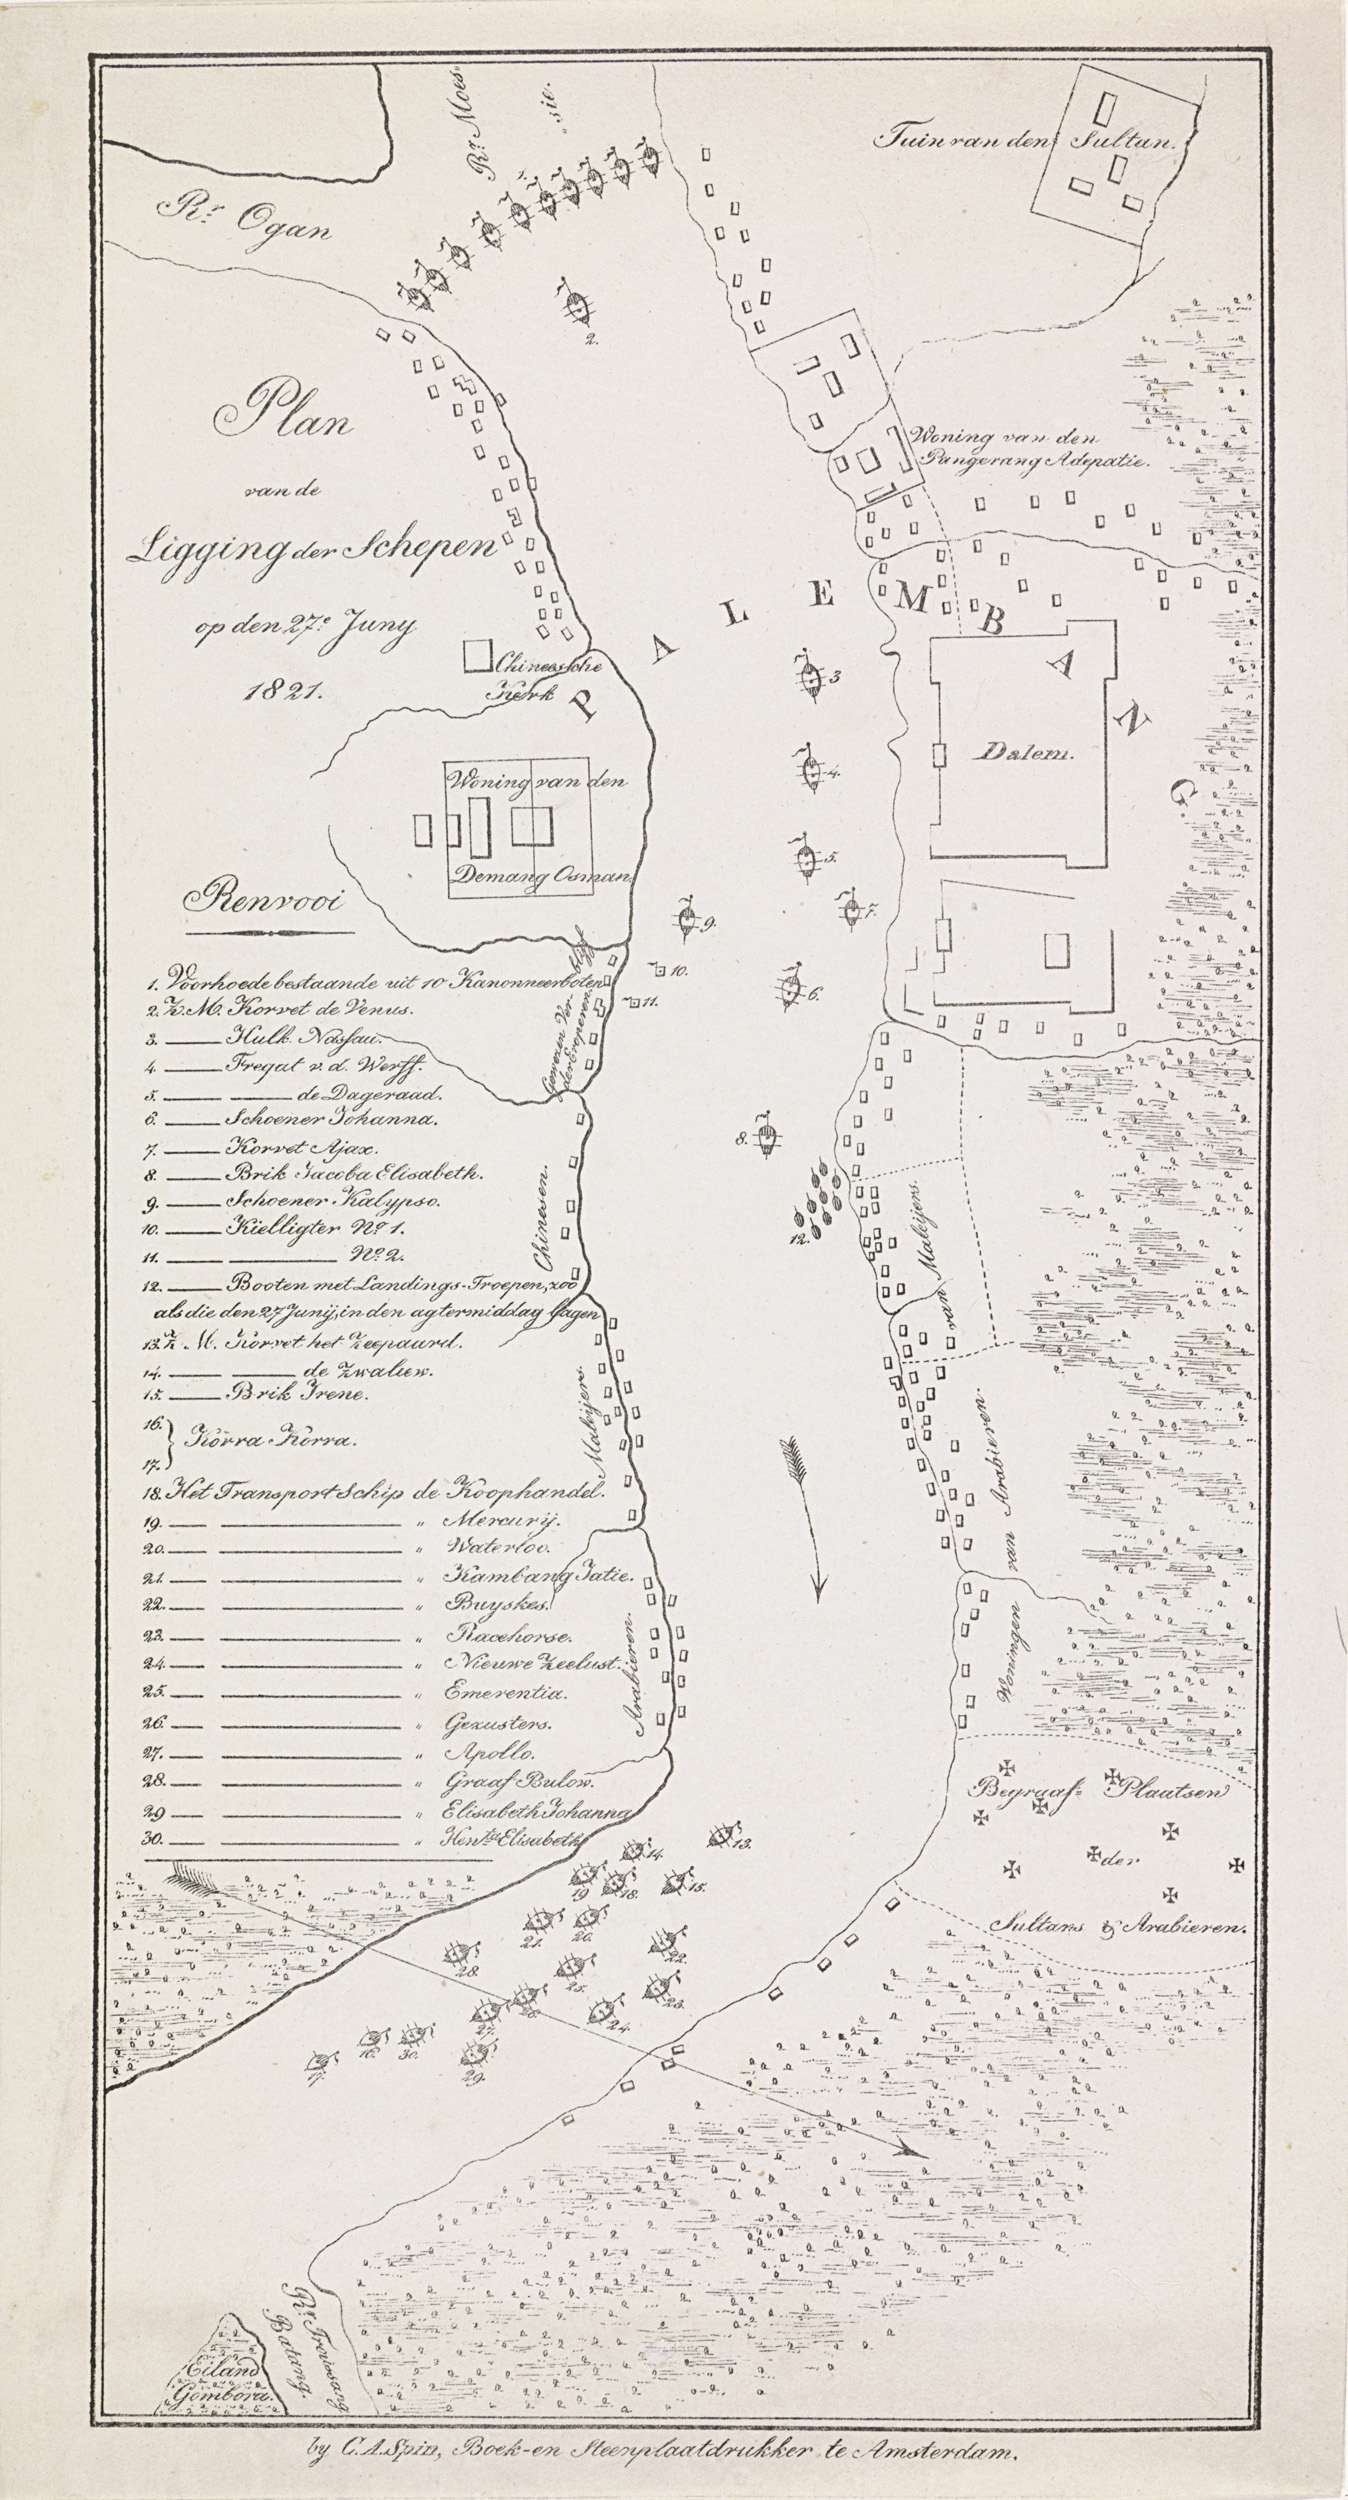 Rr. Moes-
sie.
Tuin van den Sultan.
Rr. Ogan
1.
2.
Plan
van de
Ligging der Schepen
op den 27e. Juny
1821.
Woning van den
Pangerang Adepatie.
PALEMBANG.
Chineesche
Kerk
3
4.
5.
7.
9.
6.
10.
11.
8.
12.
Dalem.
Woning van den
Demang Osman.
Renvooi
1. Voorhoede bestaande uit 10 Kanonneerboten
2. Z. M. Korvet de Venus.
3. Hulk Nassau.
4 Fregat v. d. Werff.
5. de Dageraad.
6. Schoener Johanna.
7. Korvet Ajax.
8. Brik Jacoba Elisabeth.
9. Schoener Kalypso.
10. Kielligter No. 1.
11. No. 2.
12. Booten met Landings-Troepen, zoo
als die den 27 Junij, in den agtermiddag lagen
13. Z. M. Korvet het Zeepaard.
14. de Zwaluw.
15. Brik Irene.
16.
17. } Korra Korra.
18. Het Transport Schip de Koophandel.
19. " Mercurij.
20. " Waterloo.
21. " Kambang Jatie.
22. " Buyskes.
23. " Racehorse.
24. " Nieuwe Zeelust.
25. " Emerentia.
26. " Gezusters.
27. " Apollo.
28. " Graaf Bulow.
29 " Elisabeth Johanna
30. " Hentta Elisabeth
Chinesen.
Maleijers.
Arabieren.
van Maleijers.
Woningen van Arabieren.
Begraaf- Plaatsen
der
Sultans & Arabieren.
13.
14.
15.
19
18.
21.
20.
22.
28.
25.
23.
26.
27.
24.
16.
30.
29.
17.
Batang.
Eiland
Gombora.
by C. A. Spin, Boek- en Steenplaatdrukker te Amsterdam.